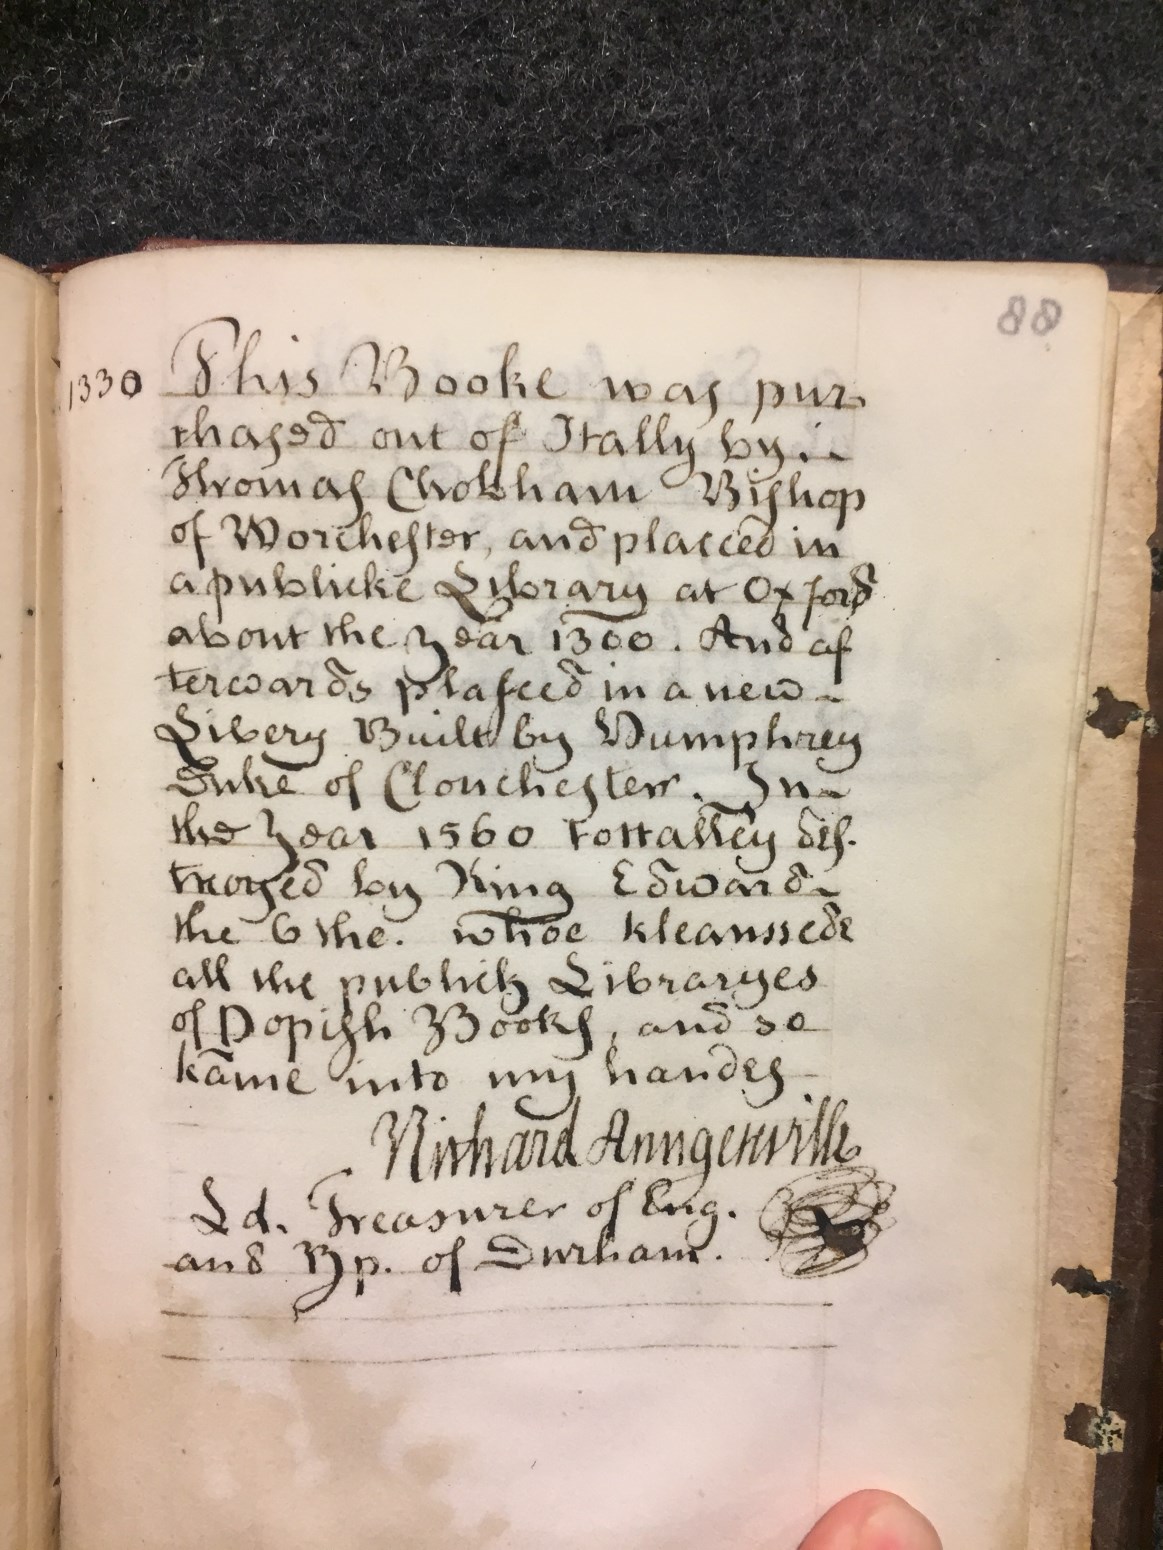 88
1330 This Booke was pur
chased out of Itally by
Thomas Chobham Bishop
of Worchester, and placced in
a publicke Library at Oxford
about the year 1300. And af
terwards plasced in a new
Libery Built by Humphrey
Duke of Clouchester. In
the year 1560 tottalley des.
troyed by King Edward
the 6 the. whoe kleanssede
all the publick Libraryes
of Popish Books, and so
kame into my handes
Richard Anngerville
Ld. Treasurer of Eng.
and Bp. of Durham.